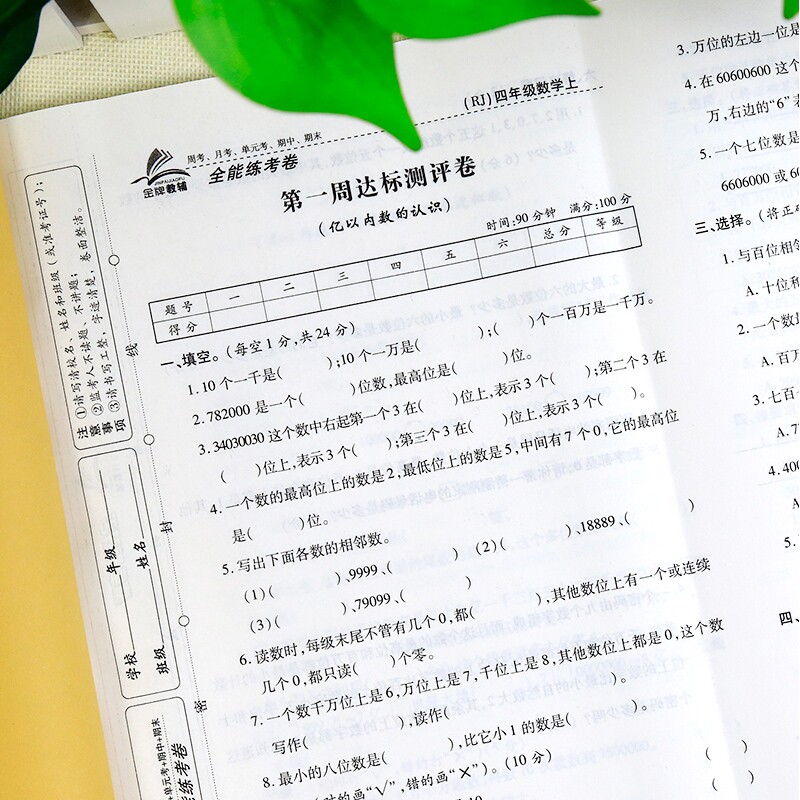 (RJ)四年级数学上
周考、月考、单元考、期中、期末
全能练考卷
JINPAIJIAOFU
金牌教辅
第一周达标测评卷
(亿以内数的认识)
时间:90分钟 满分:100分
题号 一 二 三 四 五 六 总分 等级
得分
一、填空。(每空1分,共24分)
1.10个一千是( );10个一万是( );( )个一百万是一千万。
2.782000是一个( )位数,最高位是( )位。
3.34030030这个数中右起第一个3在( )位上,表示3个( );第二个3在
( )位上,表示3个( );第三个3在( )位上,表示3个( )。
4.一个数的最高位上的数是2,最低位上的数是5,中间有7个0,它的最高位
是( )位。
5.写出下面各数的相邻数。
(1)( )、9999、( ) (2)( )、18889、( )
(3)( )、79099、( )
6.读数时,每级末尾不管有几个0,都( ),其他数位上有一个或连续
几个0,都只读( )个零。
7.一个数千万位上是6,万位上是7,千位上是8,其他数位上都是0,这个数
写作( ),读作( )。
8.最小的八位数是( ),比它小1的数是( )。
对的画“√”,错的画“×”)。(10分)
( )
( )
3.万位的左边一位是
4.在60600600这个
万,右边的“6”表
5.一个七位数是
6606000或60
三、选择。(将正确
1.与百位相邻
A.十位和
2.一个数
A.百万
3.七百
A.7
4.400
A.
5.
四、
注意事项
①请写清校名、姓名和班级(或准考证号);
②监考人不读题、不讲题;
③请书写工整,字迹清楚,卷面整洁。
线
封
密
学校 年级
班级 姓名
单元考+期中+期末
练考卷